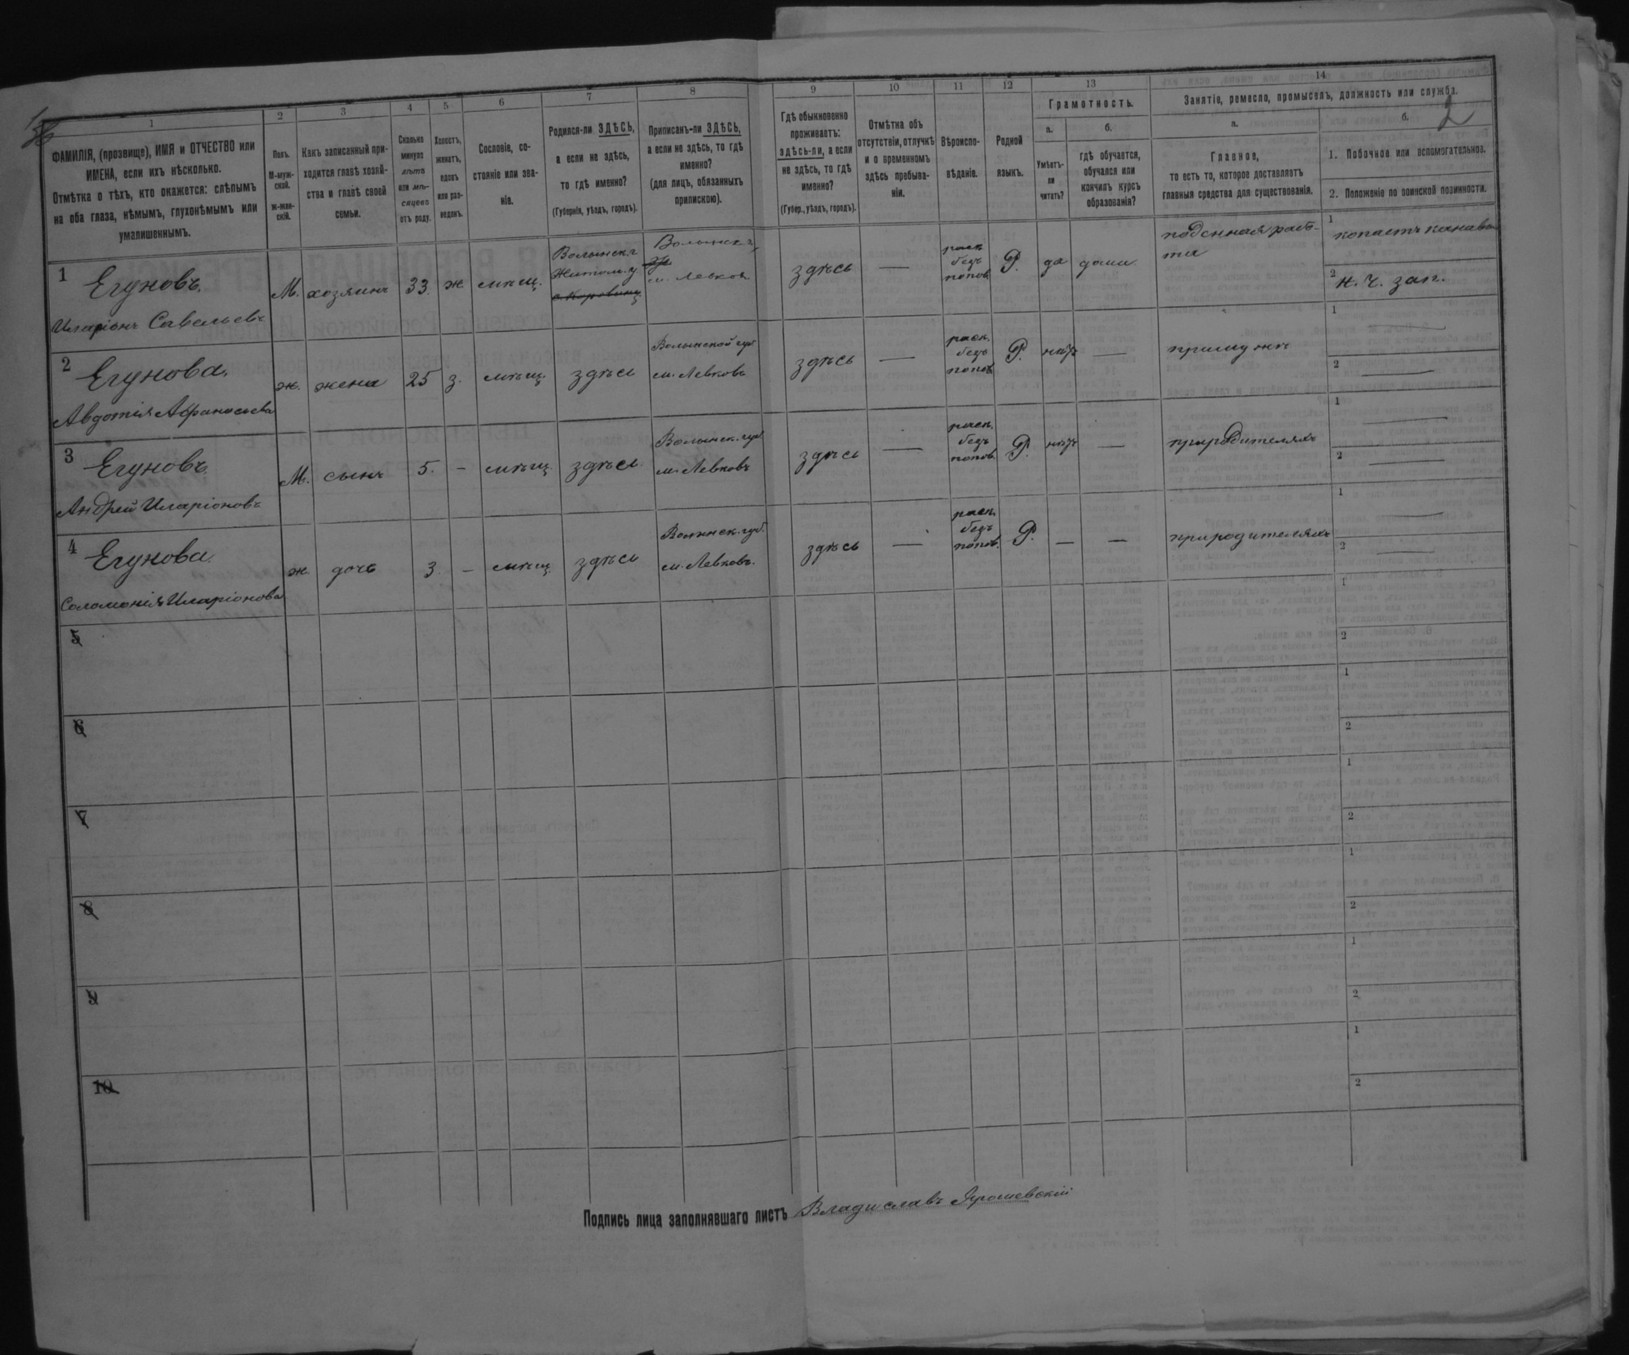 2
1 2 3 4 5 6 7 8 9 10 11 12 13 14
ФАМИЛІЯ, (прозвище), ИМЯ и ОТЧЕСТВО или
ИМЕНА, если ихъ нѣсколько.
Отмѣтка о тѣхъ, кто окажется: слѣпымъ
на оба глаза, нѣмымъ, глухонѣмымъ или
умалишеннымъ.
Полъ.
М-муж-
ской.
ж-жен-
скій.
Какъ записанный при-
ходится главѣ хозяй-
ства и главѣ своей
семьи.
Сколько
минуло
лѣтъ
или мѣ-
сяцевъ
отъ роду.
Холостъ,
женатъ,
вдовъ
или раз-
веденъ.
Сословіе, со-
стояніе или зва-
ніе.
Родился-ли ЗДѢСЬ,
а если не здѣсь,
то гдѣ именно?
(Губернія, уѣздъ, городъ).
Приписанъ-ли ЗДѢСЬ,
а если не здѣсь, то гдѣ
именно?
(для лицъ, обязанныхъ
припискою).
Гдѣ обыкновенно
проживаетъ:
здѣсь-ли, а если
не здѣсь, то гдѣ
именно?
(Губер., уѣздъ, городъ).
Отмѣтка объ
отсутствіи, отлучкѣ
и о временномъ
здѣсь пребыва-
ніи.
Вѣроиспо-
вѣданіе.
Родной
языкъ.
Грамотность.
а.
Умѣетъ-
ли
читать?
б.
гдѣ обучается,
обучался или
кончилъ курсъ
образованія?
Занятіе, ремесло, промыселъ, должность или служба.
а.
Главное,
то есть то, которое доставляетъ
главныя средства для существованія.
б.
1. Побочное или вспомогательное.
2. Положеніе по воинской повинности.
1 Егуновъ
Иларіонъ Савельевъ
М. хозяинъ 33 ж мѣщ.
Волынск.
Житом. у.
Волынск.
м. Левков
здѣсь —
раск.
безъ
попов.
Р. да дома
поденная рабо-
та
1 копаетъ канавы
2 н. ч. зап.
2 Егунова
Авдотія Афанасьева
ж. жена 25 з. мѣщ здѣсь
Волынской губ
м. Левковъ
здѣсь —
раск.
безъ
попов
Р. нѣтъ — при мужѣ
1 —
2 —
3 Егуновъ
Андрей Иларіоновъ
М. сынъ 5. – мѣщ здѣсь
Волынск. губ
м. Левковъ
здѣсь —
раск.
безъ
попов
Р. нѣтъ — при родителяхъ
1 —
2 —
4 Егунова
Соломонія Иларіонова
ж дочь 3. – мѣщ здѣсь
Волынск. губ.
м. Левковъ.
здѣсь —
раск.
безъ
попов.
Р. — — при родителяхъ
1 —
2 —
5
1
2
6
1
2
7
1
2
8
1
2
9
1
2
10
1
2
Подпись лица заполнявшаго листъ Владиславъ Ярошевскій